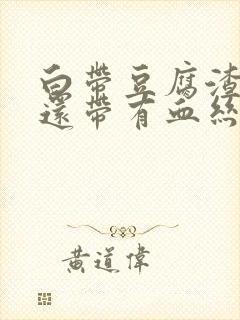 白帶豆腐渣
還帶有血絲
黃道偉